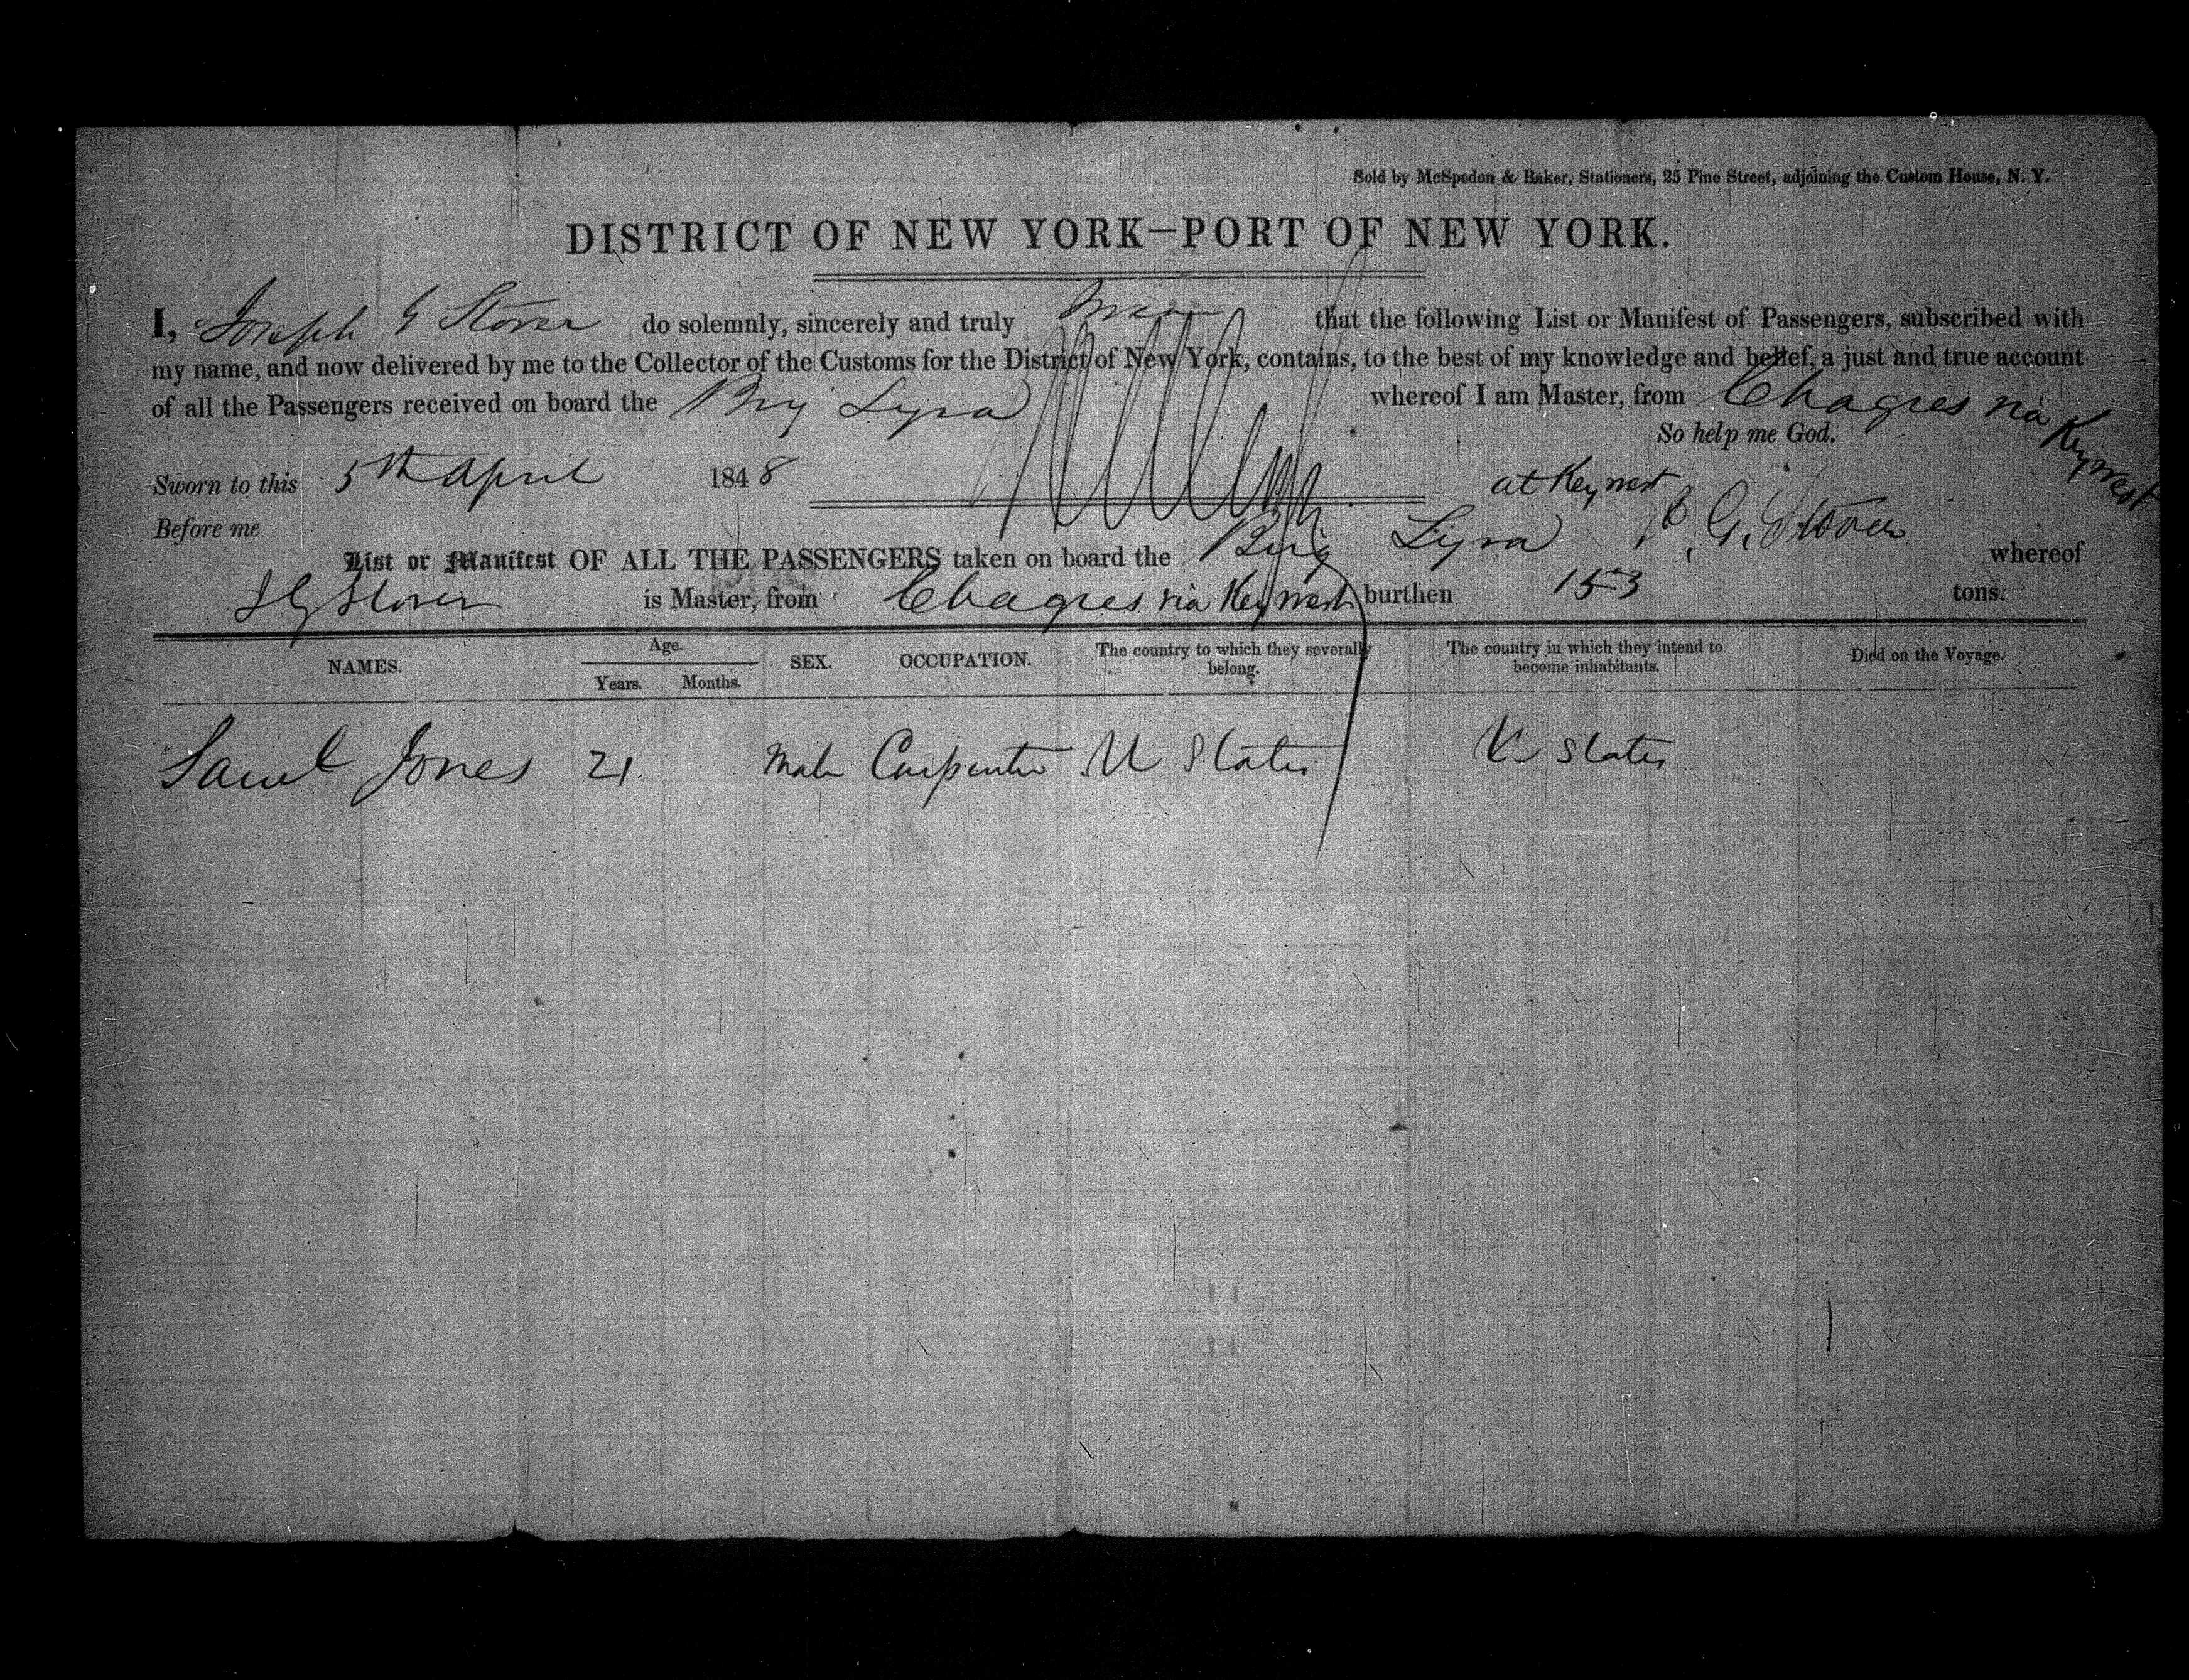 Sold by McSpedon & Baker, Stationers, 25 Pine Street, adjoining the Custom House, N. Y.
DISTRICT OF NEW YORK—PORT OF NEW YORK.
I, Joseph G Stover do solemnly, sincerely and truly swear that the following List or Manifest of Passengers, subscribed with
my name, and now delivered by me to the Collector of the Customs for the District of New York, contains, to the best of my knowledge and belief, a just and true account
of all the Passengers received on board the Brig Lyra whereof I am Master, from Chagres via Key west
So help me God.
Sworn to this 5th April 1848 at Key west
Before me G. Stover
List or Manifest OF ALL THE PASSENGERS taken on board the Brig Lyra whereof
J G Stover is Master, from Chagres via Key west burthen 153 tons.
NAMES. Age. Years. Months. SEX. OCCUPATION. The country to which they severally belong. The country in which they intend to become inhabitants. Died on the Voyage.
Saml Jones 21 Male Carpenter U States U States